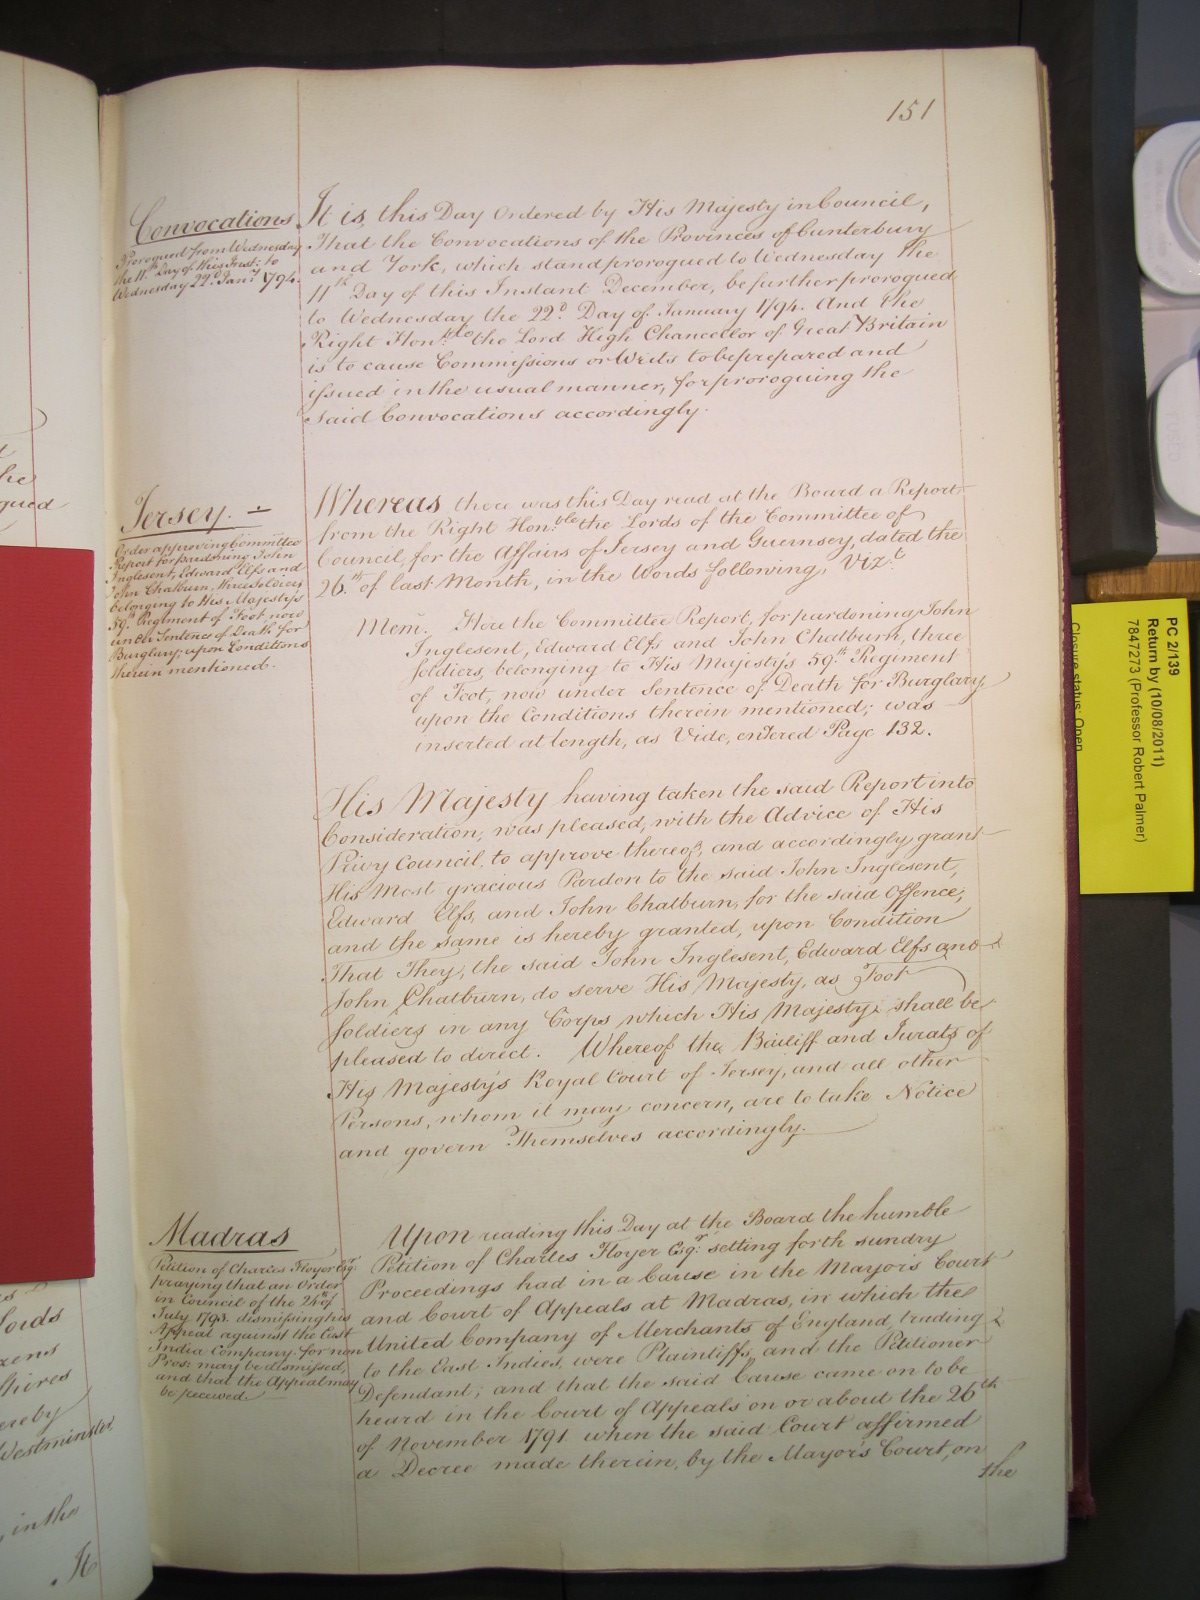 151
Convocations
Prorogued from Wednesday
the 11th Day of this Inst: to
Wednesday 22d Janry 1794.
It is this Day Ordered by His Majesty in Council,
That the Convocations of the Provinces of Canterbury
and York, which stand prorogued to Wednesday the
11th Day of this Instant December, be further prorogued
to Wednesday the 22d Day of January 1794. And the
Right Honble the Lord High Chancellor of Great Britain
is to cause Commissions or Writs to be prepared and
issued in the usual manner, for proroguing the
said Convocations accordingly.
Jersey. ÷
Order approving Committee
Report for pardoning John
Inglesent, Edward Elfs and
John Chatburn, three Soldiers
belonging to His Majesty's
59th Regiment of Foot now
under Sentence of Death for
Burglary; upon Conditions
therein mentioned.
Whereas there was this Day read at the Board a Report
from the Right Hon.ble the Lords of the Committee of
Council, for the Affairs of Jersey and Guernsey, dated the
26th of last Month, in the Words following, Vizt
Mem. Here the Committee Report, for pardoning John
Inglesent, Edward Elfs and John Chatburn, three
Soldiers, belonging to His Majesty's 59th Regiment
of Foot, now under Sentence of Death for Burglary,
upon the Conditions therein mentioned; was
inserted at length, as Vide, entered Page 132.
His Majesty having taken the said Report into
Consideration, was pleased, with the Advice of His
Privy Council, to approve thereof, and accordingly grant
His Most gracious Pardon to the said John Inglesent,
Edward Elfs, and John Chatburn, for the said Offence;
and the same is hereby granted, upon Condition
That They, the said John Inglesent, Edward Elfs and
John Chatburn, do serve His Majesty, as Foot
Soldiers in any Corps which His Majesty shall be
pleased to direct. Whereof the Bailiff and Jurats of
His Majesty's Royal Court of Jersey, and all other
Persons, whom it may concern, are to take Notice
and govern Themselves accordingly.
Madras
Petition of Charles Floyer Esqr
praying that an Order
in Council of the 24th of
July 1793. dismissing his
Appeal against the East
India Company for non
Pros: may be dismissed,
and that the Appeal may
be received
Upon reading this Day at the Board the humble
Petition of Charles Floyer Esqr setting forth sundry
Proceedings had in a Cause in the Mayor's Court
and Court of Appeals at Madras, in which the
United Company of Merchants of England, trading
to the East Indies, were Plaintiffs, and the Petitioner
Defendant; and that the said Cause came on to be
heard in the Court of Appeals on or about the 26th
of November 1791 when the said Court affirmed
a Decree made therein, by the Mayor's Court, on
the
he
gued
Lords
hires
ereby
Westminster
, in the
It
PC 2/139
Return by (10/08/2011)
7847273 (Professor Robert Palmer)
Closure status: Open